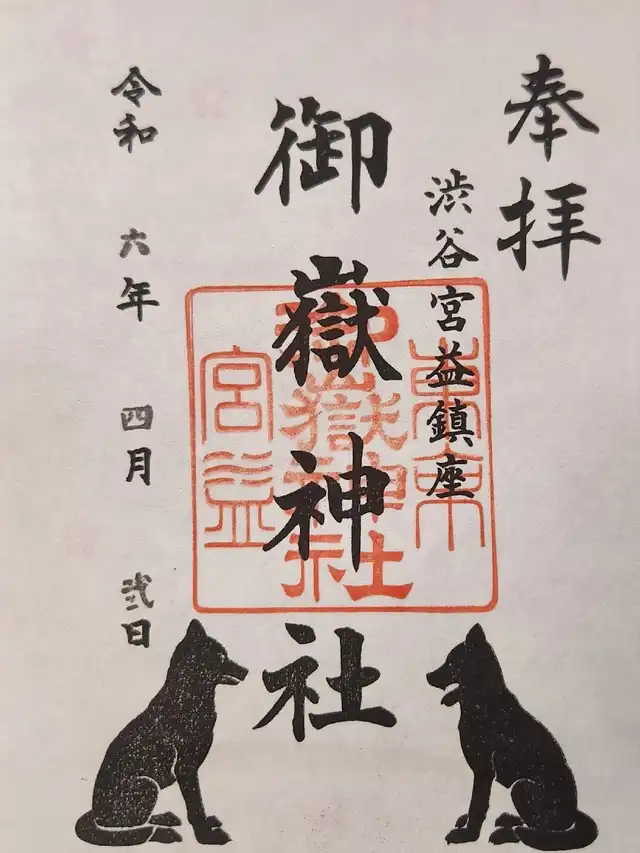 奉拝
渋谷宮益鎮座
御嶽神社
令和 六年 四月 弐日
東京
御嶽神社
宮益